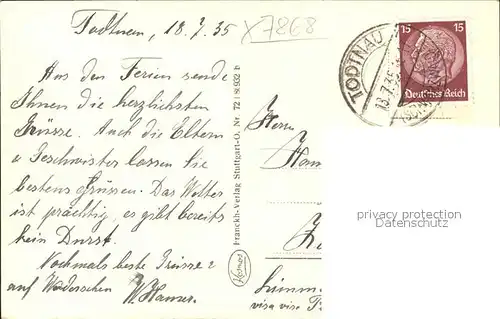 Todtnau, 18.7.35
X7868
Aus den Ferien sende
Ihnen die herzlichsten
Grüsse. Auch die Eltern
u Geschwister lassen Sie
bestens Grüssen. Das Wetter
ist prächtig, es gibt bereits
kein Durst.
Nochmals beste Grüsse &
auf Wiedersehen
W. Hamer.
Franckh-Verlag Stuttgart-O. Nr. 721 St 932 b
Kosmos
Herrn
visa vise
TODTNAU
18.7.35
15 15
Deutsches Reich
privacy protection
Datenschutz